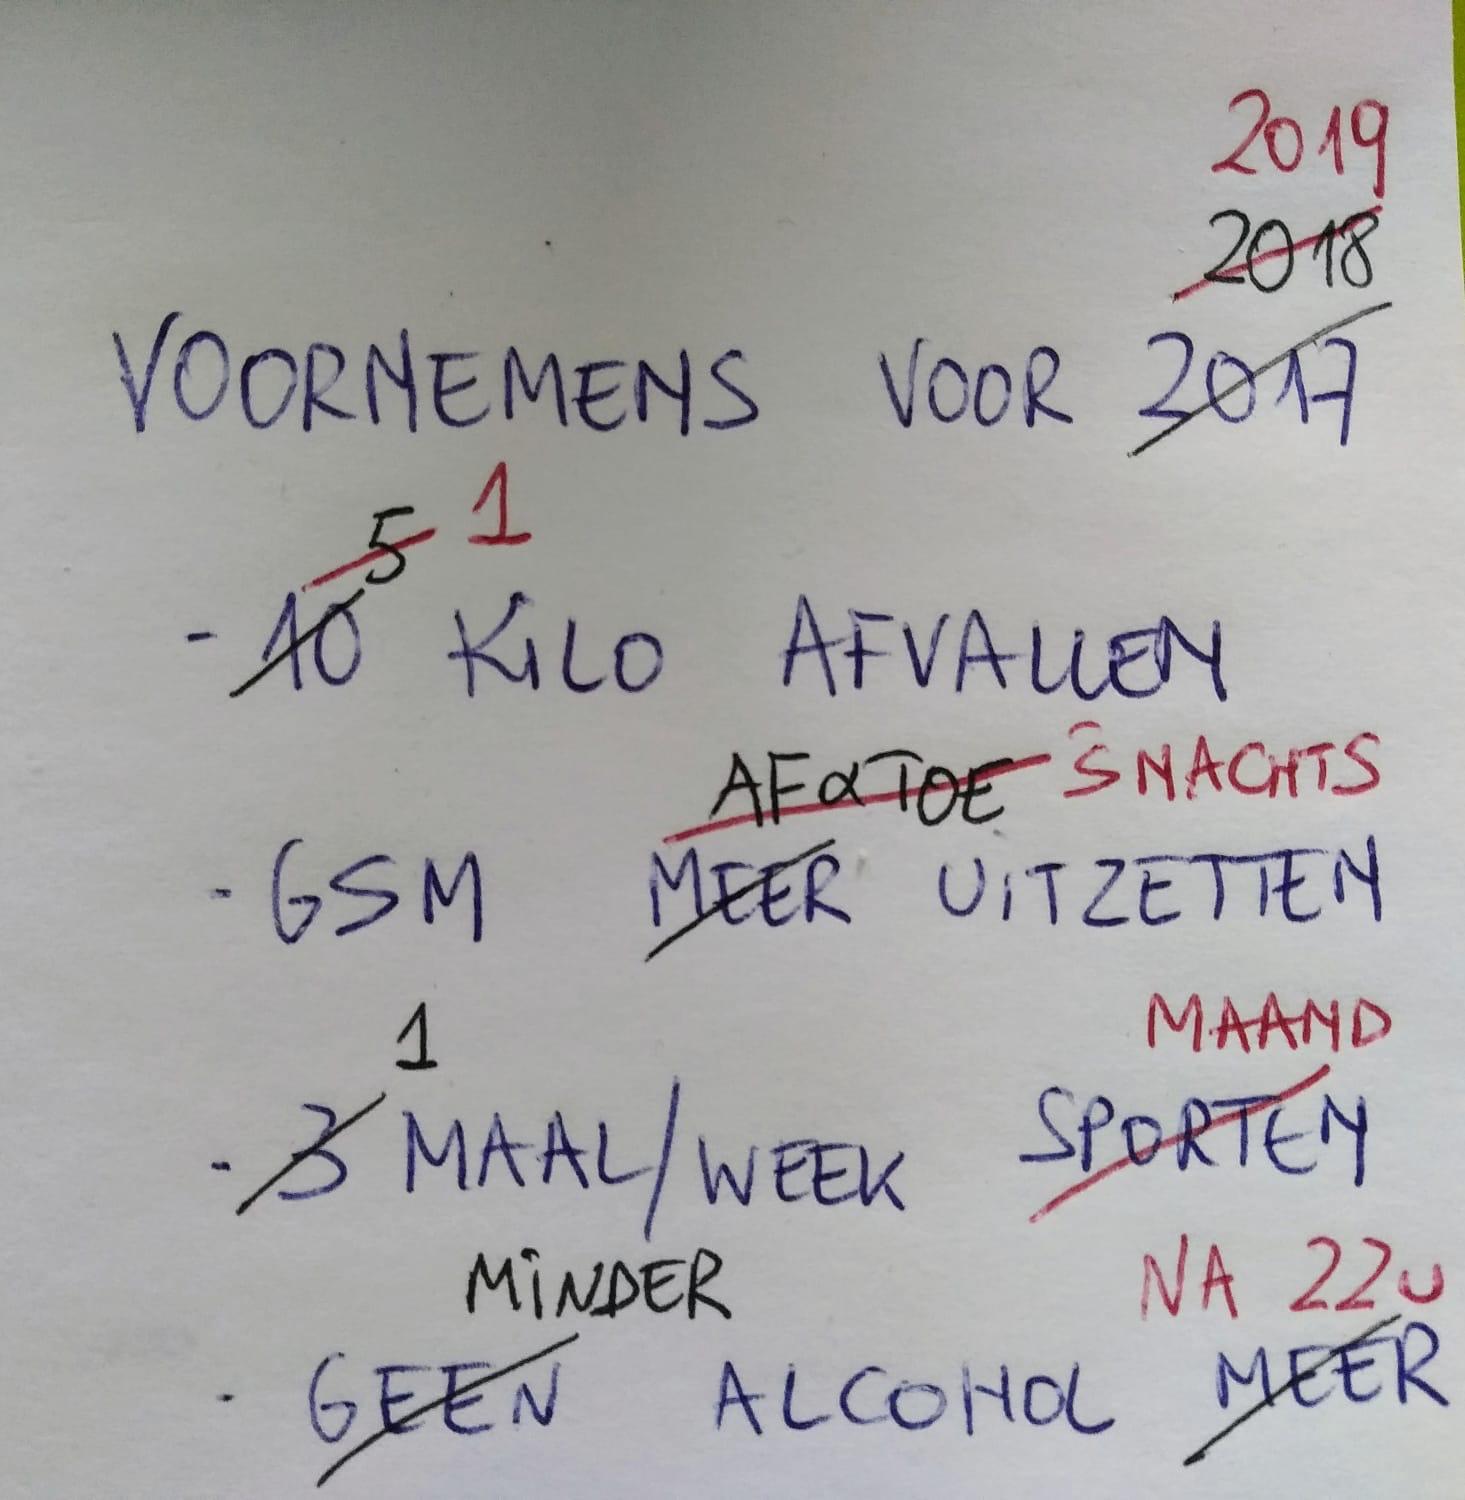 2019
2018
VOORNEMENS VOOR 2017
5 1
- 10 KILO AFVALLEN
AF & TOE 'S NACHTS
- GSM MEER UITZETTEN
1 MAAND
- 3 MAAL/WEEK SPORTEN
MINDER NA 22U
- GEEN ALCOHOL MEER